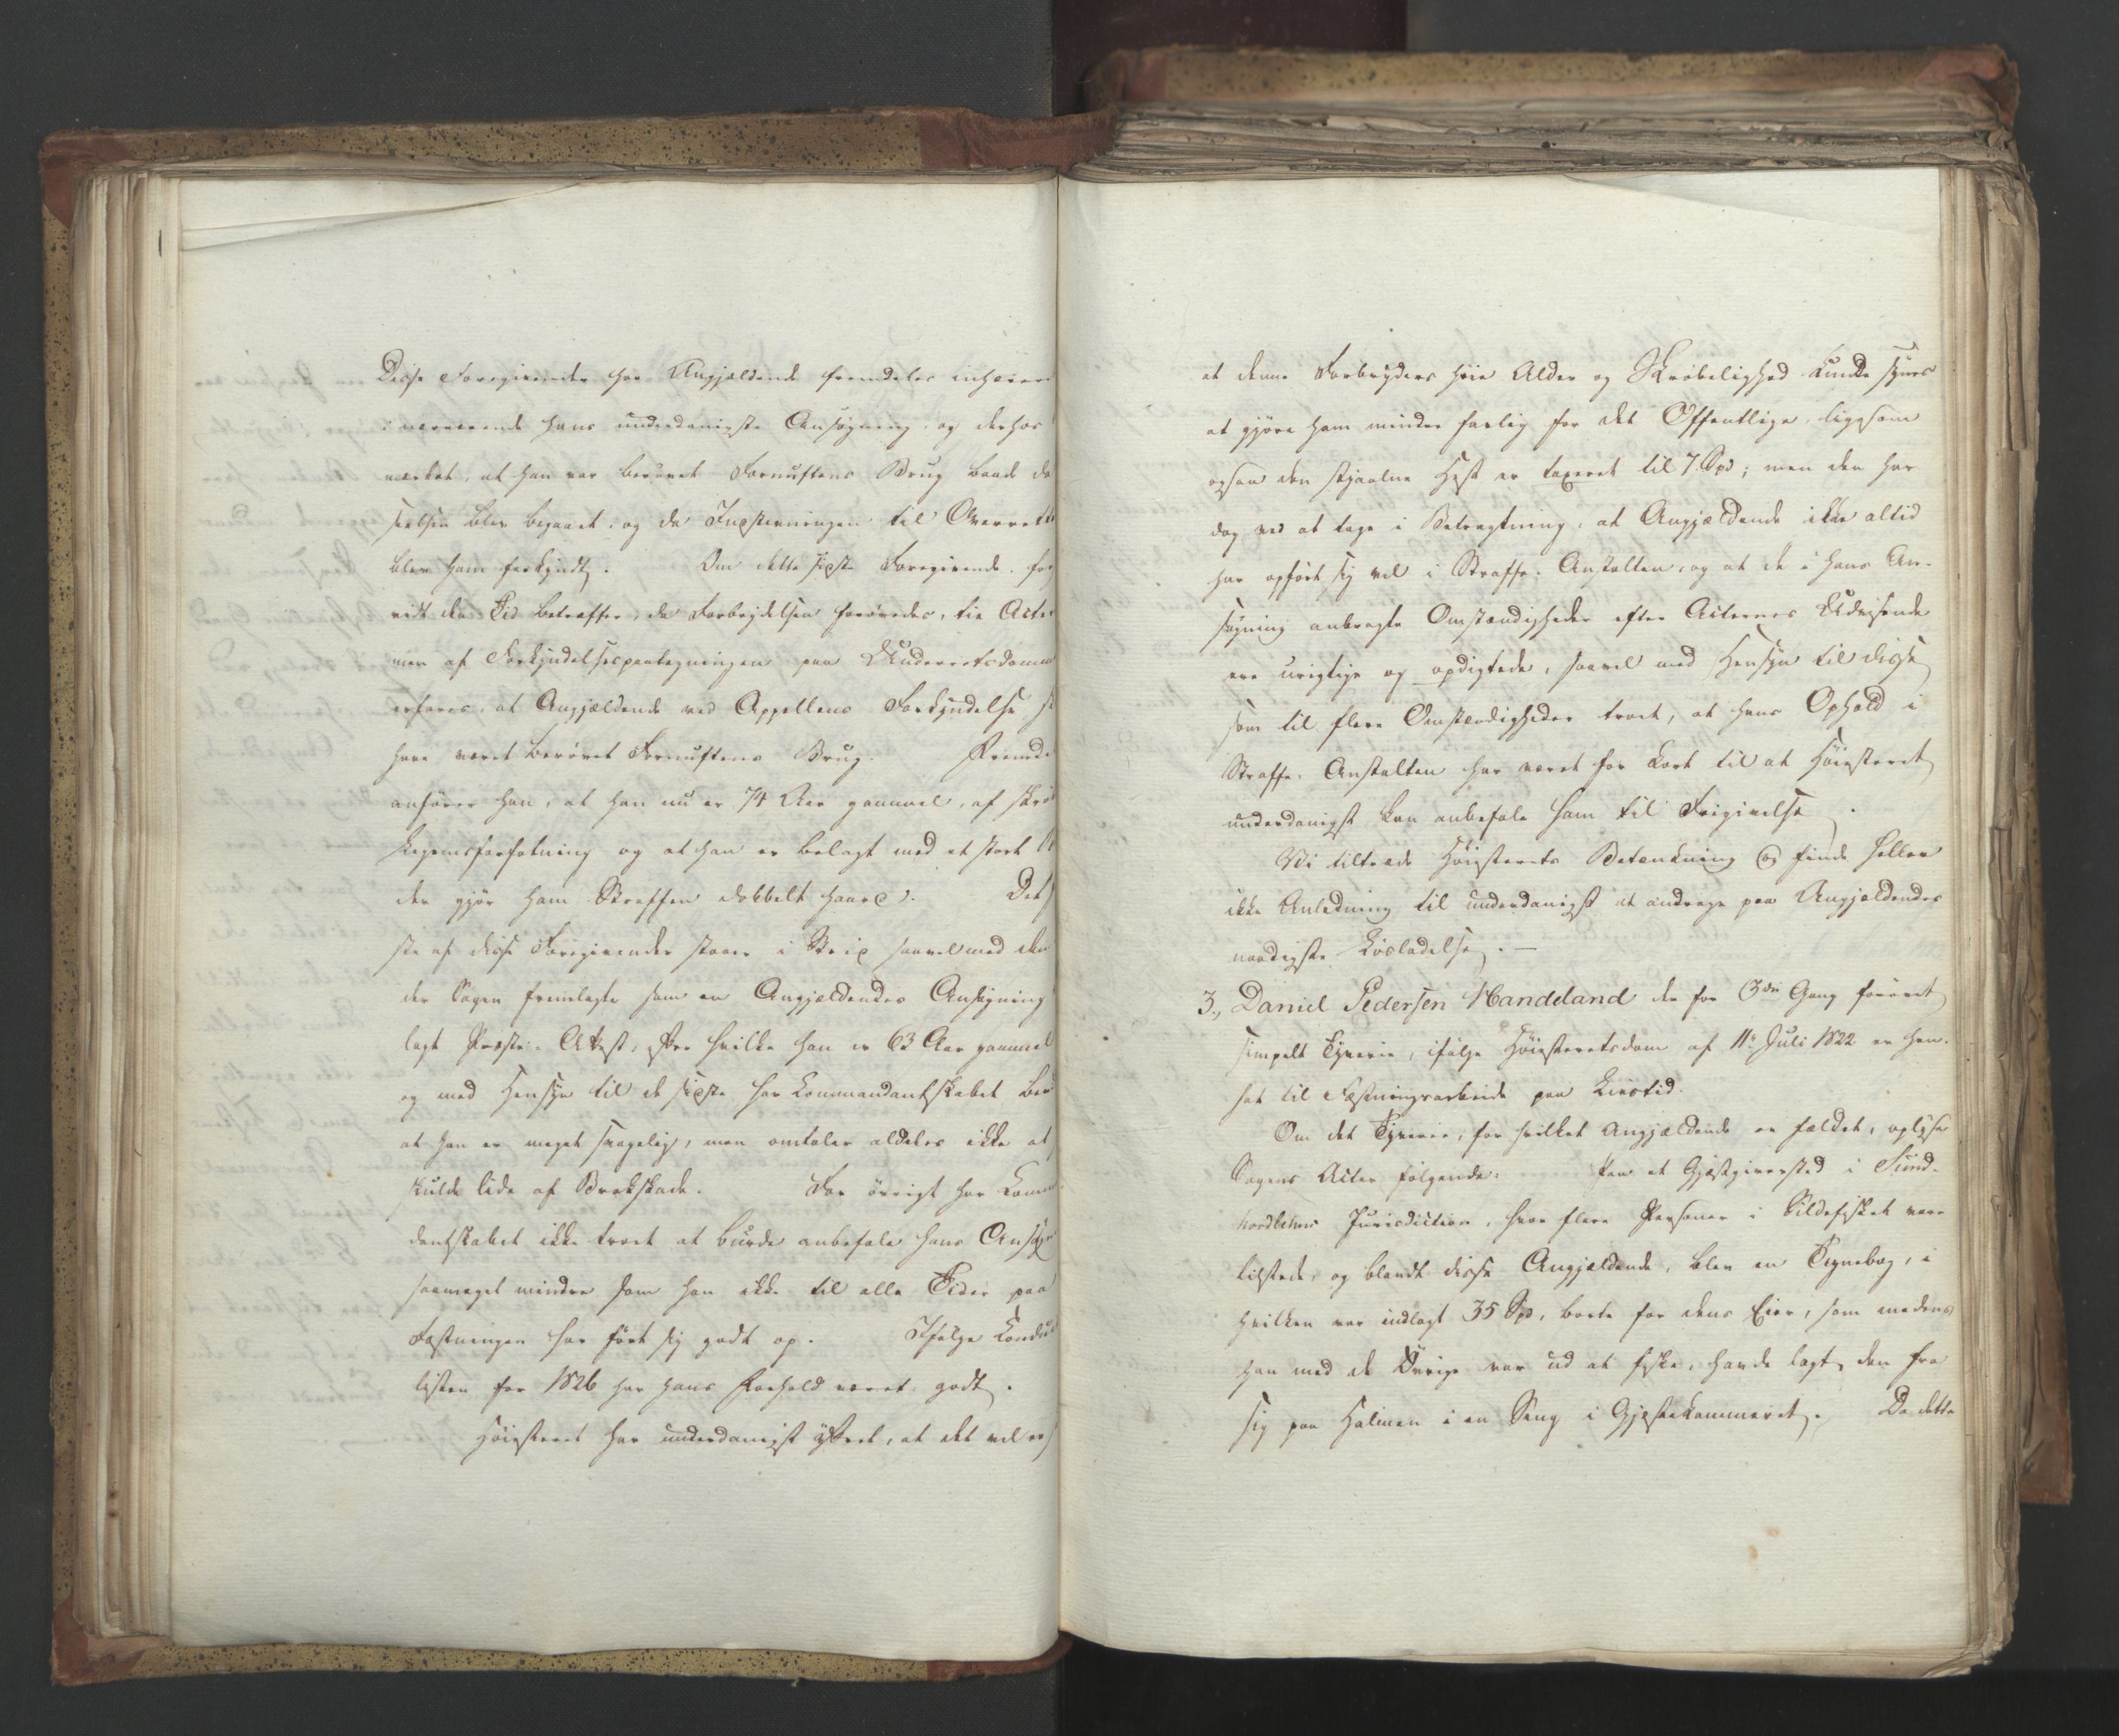 Disse Foregivender har Angjældende fremdeles inhæret
i nærværende hans underdanigste Ansøgning, og derhos
mærket, at han var berøvet Fornuftens Brug baade da
seelsen blev begaaet, og da Indstevningen til Overrett
blev ham forkyndt. Om dette sidste Foregivende, for
vidt den Tid betræffer, da Forbrydelsen forøvedes, tie Acter
men af Forkyndelsespaategningen paa Underretsdomm
erfares, at Angjældende ved Appellens Forkyndelse s
have været berøvet Fornuftens Brug. Fremde
anfører han, at han nu er 74 Aar gammel, af skrø
Legemsforfatning og at han er belagt med et stort
der gjør ham Straffen dobbelt haard. Det
ste af disse Foregivender staaer i Strid saavel med den
der Sagen fremlagte som en Angjældendes Ansøgning
lagt Præste-Attest, efter hvilke han er 63 Aar gammel
og med Hensyn til de sidste har Kommandantskabet ber
at han er meget svagelig, men omtaler aldeles ikke at
skulde lide af Brokskade. For øvrigt har Komm
dantskabet ikke troet at burde anbefale hans Ansøgn
saameget mindre som han ikke til alle Tider paa
Fæstningen har ført sig godt op. Ifølge Conduit
listen for 1826 har hans Forhold været godt.
Høiesteret har underdanigst yttret, at det vel er
at denne Forbryders høie Alder og Skrøbelighed kunde synes
at gjøre ham mindre farlig for det Offentlige, ligesom
ogsaa den stjaalne Hest er taxeret til 7 Spd; men den har
dog ved at tage i Betragtning, at Angjældende ikke altid
har opført sig vel i Straffe-Anstalten, og at de i hans An-
søgning anbragte Omstændigheder efter Acternes Udvisende
ere urigtige og opdigtede, saavel med Hensyn til disse
som til flere Omstændigheder troet, at hans Ophold i
Straffe-Anstalten har været for kort til at Høiesteret
underdanigst kan anbefale ham til Frigivelse.
Vi tiltræde Høiesterets Betænkning og finde heller
ikke Anledning til underdanigst at andrage paa Angjældendes
naadigste Løsladelse. —
3., Daniel Pedersen Handeland der for 3die Gang forøvet
simpelt Tyverie, ifølge Høiesteretsdom af 11te Juli 1822 er hen-
sat til Fæstningsarbeide paa Livstid.
Om det Tyverie, for hvilket Angjældende er fældet, oplyse
Sagens Acter følgende: Paa et Gjæstgiversted i Sünd-
hordlehns Jurisdiction, hvor flere Personer i Sildefisket vare
tilstede, og blandt disse Angjældende, blev en Tegnebog, i
hvilken var indlagt 35 Spd, borte for dens Eier, som medens
han med de Øvrige var ud at fiske, havde lagt den fra
sig paa Halmen i en Seng i Gjæstekammeret. Da dette